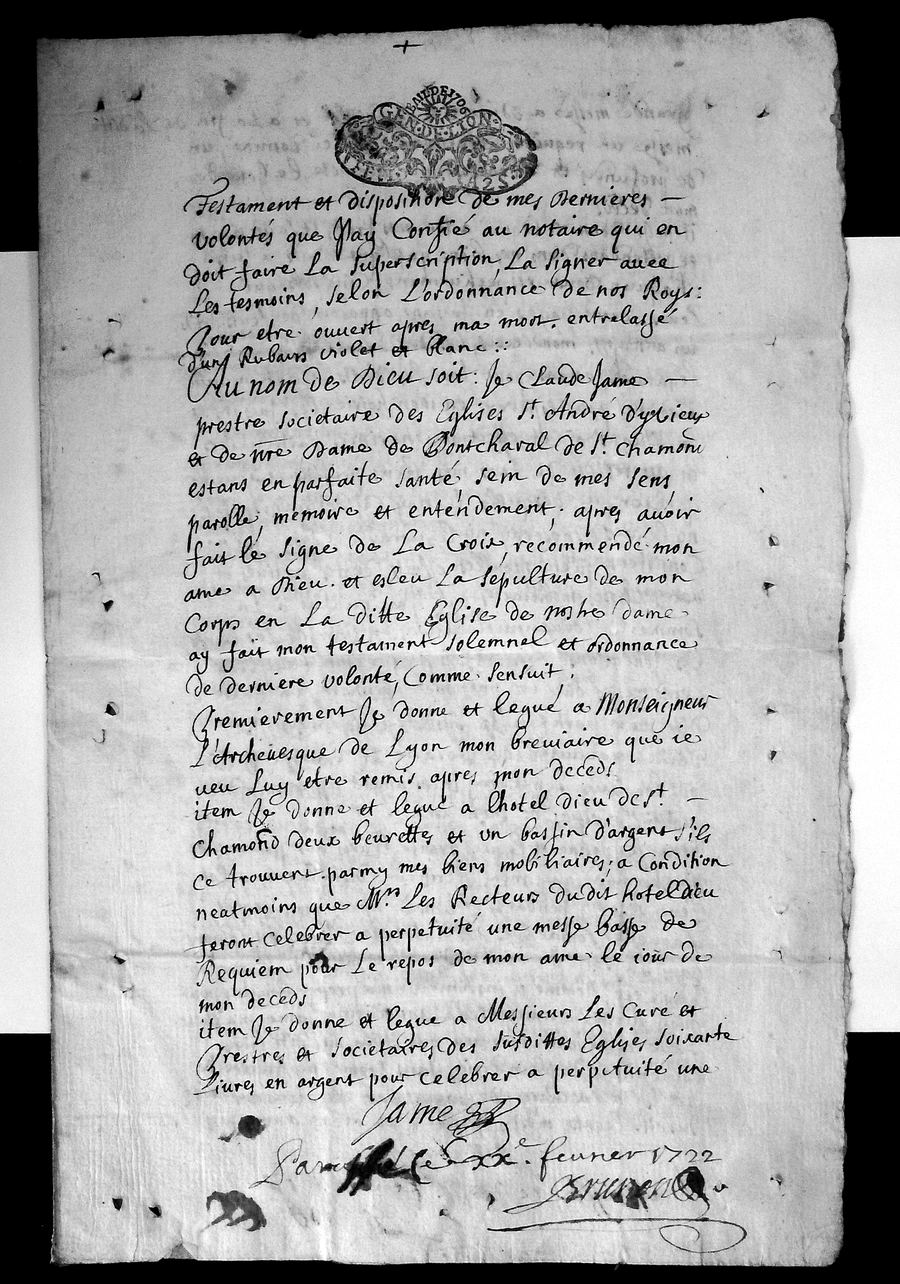 GEN·DE·LION·
Testament et disposition de mes dernieres —
volontés que J'ay Confié au notaire qui en
doit faire La superscription, La signer avec
Les tesmoins, selon L'ordonnance de nos Roys:
Pour etre ouvert apres ma mort. entrelassé
d'un Rubans violet et blanc ::
Au nom de Dieu soit: Je Claude Jame —
prestre societaire des Eglises St. André d'yzieux
et de nre Dame de Montcharal de St. chamond
estans en parfaite santé sein de mes sens
parolle, memoire et entendement; apres avoir
fait le signe de La Croix, recommendé mon
ame a Dieu. et esleu La sépulture de mon
Corps en La ditte Eglise de nostre dame
ay fait mon testament solemnel et ordonnance
de derniere volonté, Comme sensuit,
Premierement Je donne et legué a Monseigneur
L'Archevesque de Lyon mon breviaire que ie
veu Luy etre remis apres mon deceds
item Je donne et legue a lhotel dieu de St. —
chamond deux beurettes et un bassin d'argent s'ils
ce trouvent parmy mes biens mobiliaires; a Condition
neatmoins que Mrs. Les Recteurs dudit hoteldieu
feront celebrer a perpetuité une messe basse de
Requiem pour Le repos de mon ame le iour de
mon deceds
item Je donne et legue a Messieurs Les Curé et
Prestres et societaires des susdittes Eglises soixante
Livres en argent pour celebrer a perpetuité une
Jame
Paraffé ce XXe. fevrier 1722